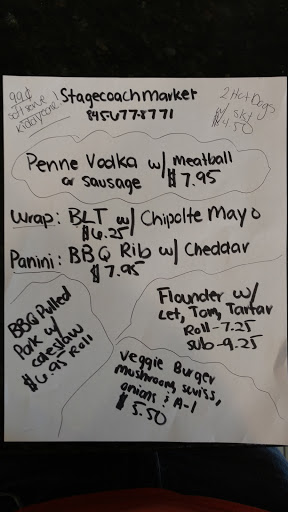 99¢
soft serve
kiddy cone!
Stagecoach Market
845 677 8771
2 Hot Dogs
w/ skt
$4.50
Penne Vodka w/ meatball
or sausage $7.95
Wrap: BLT w/ Chipolte Mayo
$6.25
Panini: BBQ Rib w/ Cheddar
$7.95
BBQ Pulled
Pork w/
coleslaw
$6.95 Roll
Flounder w/
Let, Tom, Tartar
Roll - 7.25
Sub - 9.25
Veggie Burger
mushroom, swiss,
onions & A-1
$5.50